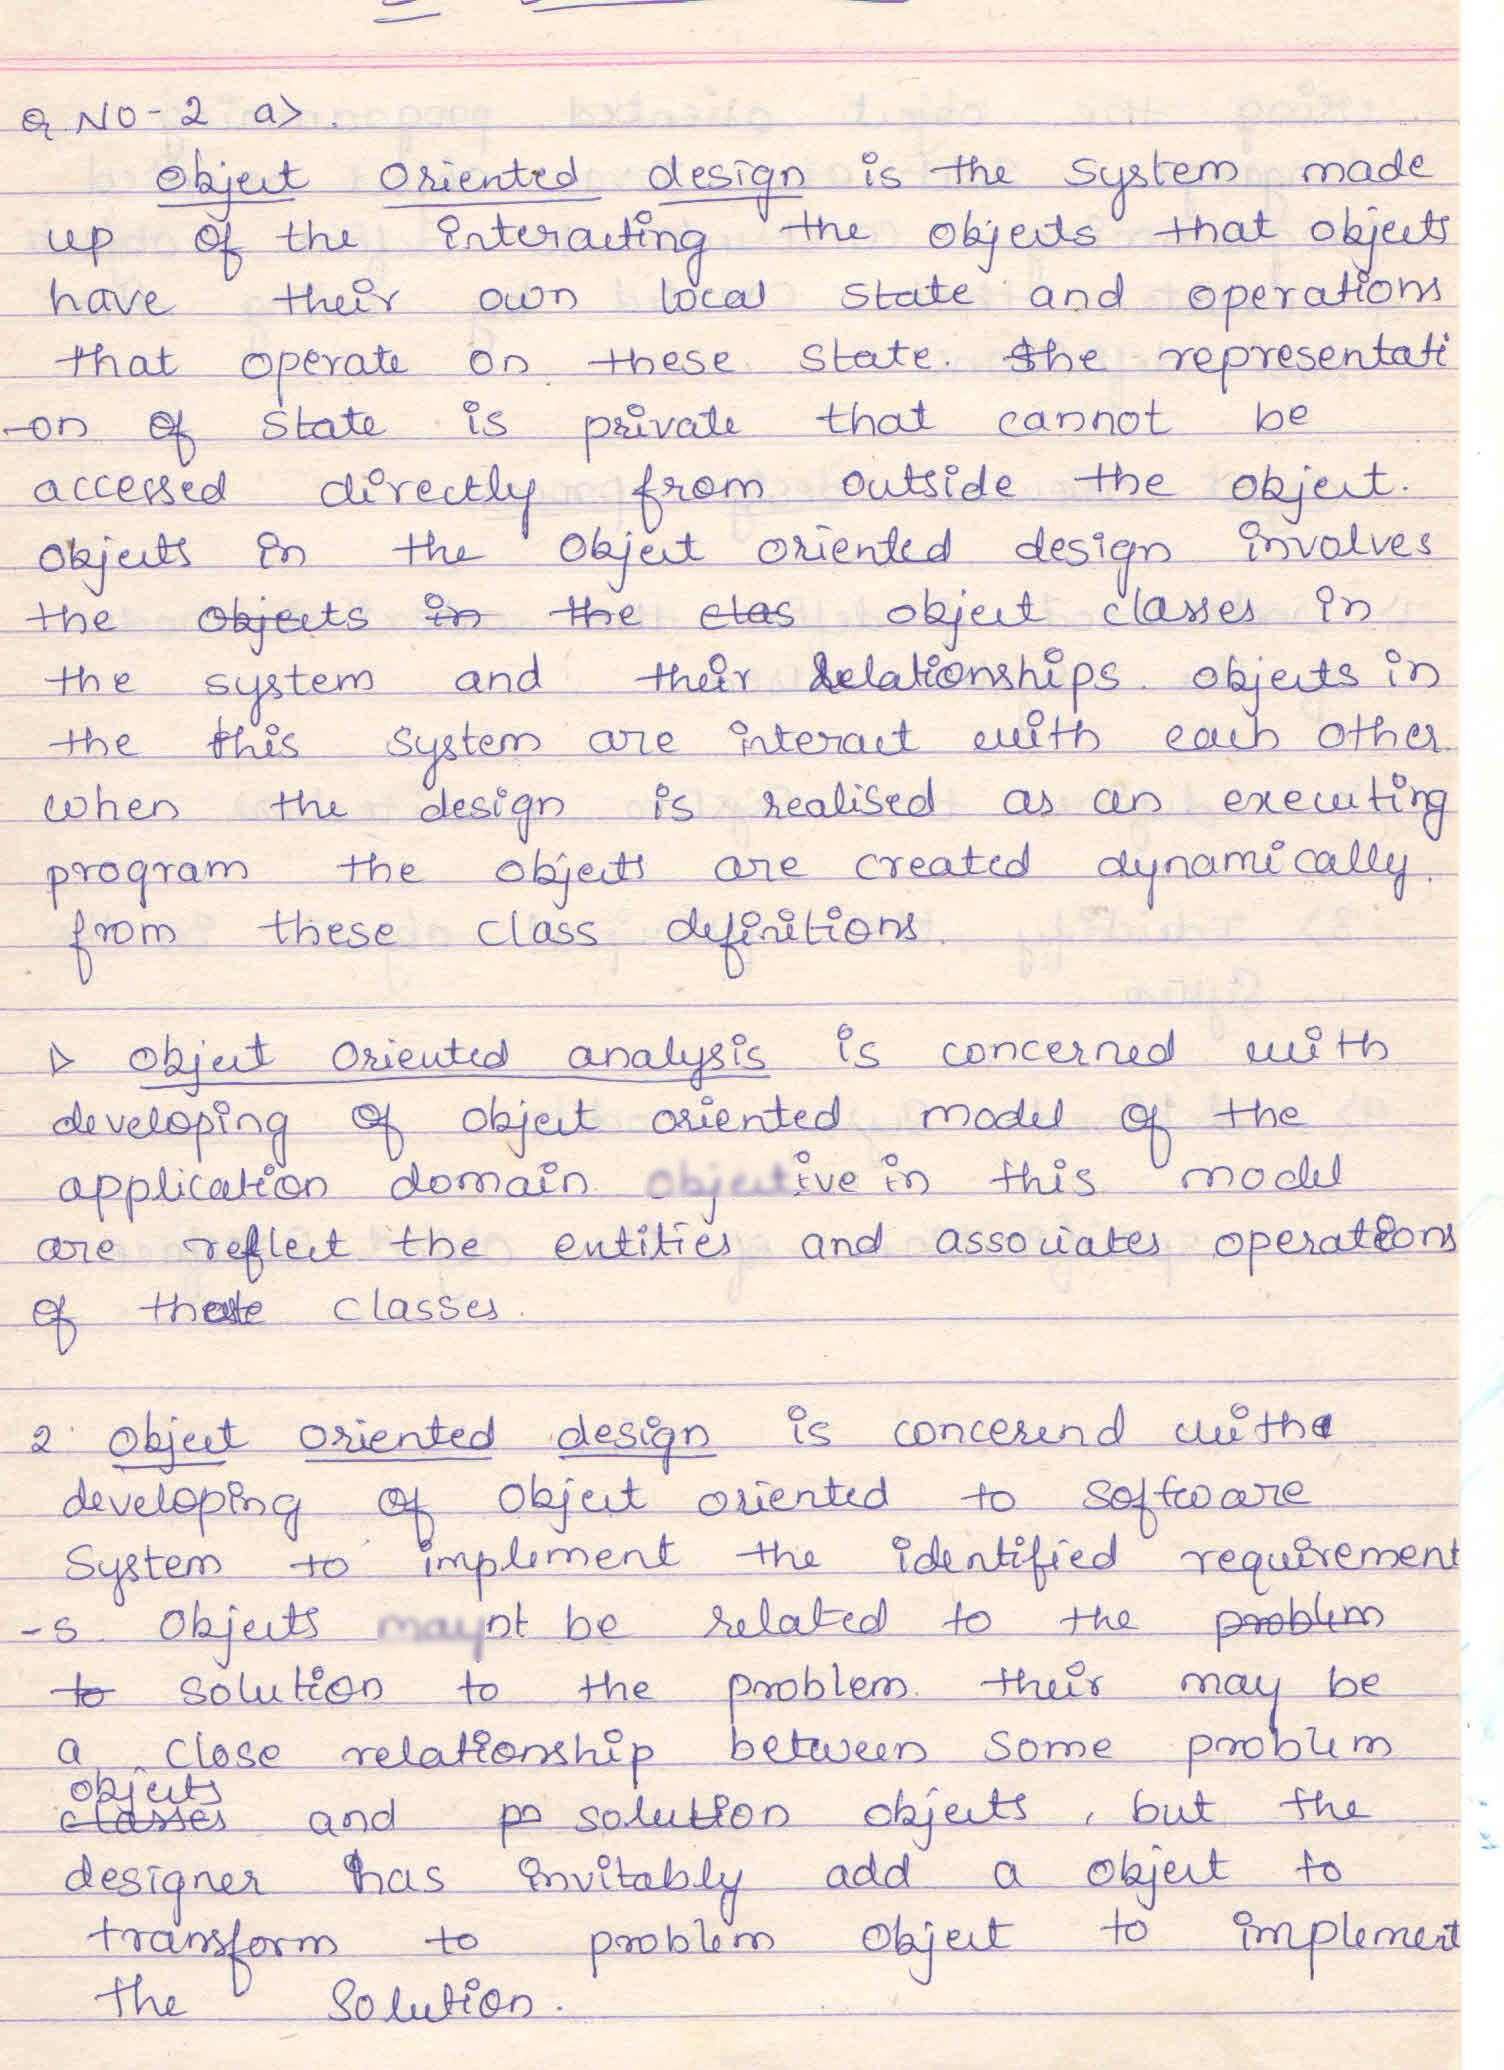 Q NO-2 a>.
Object oriented design is the system made
up of the interacting the objects that objects
have their own local state and operations
that operate on these state. The representati
-on of state is private that cannot be
accessed directly from outside the object.
Objects in the object oriented design involves
the objects in the clas object classes in
the system and their relationships. objects in
the this system are interact with each other.
when the design is realised as an executing
program the objects are created dynamically.
from these class definitions.
1> object oriented analysis is concerned with
developing of object oriented model of the
application domain. ive in this model
are reflect the entities and associates operations
of classes.
2. object oriented design is concerend with
developing of object oriented to software
system to implement the identified requirement
-s. Objects be related to the problem
to solution to the problem. their may be
a close relationship between some problem
objects
classes and po solution objects, but the
designer has invitably add a object to
transform to problem object to implement
the solution.